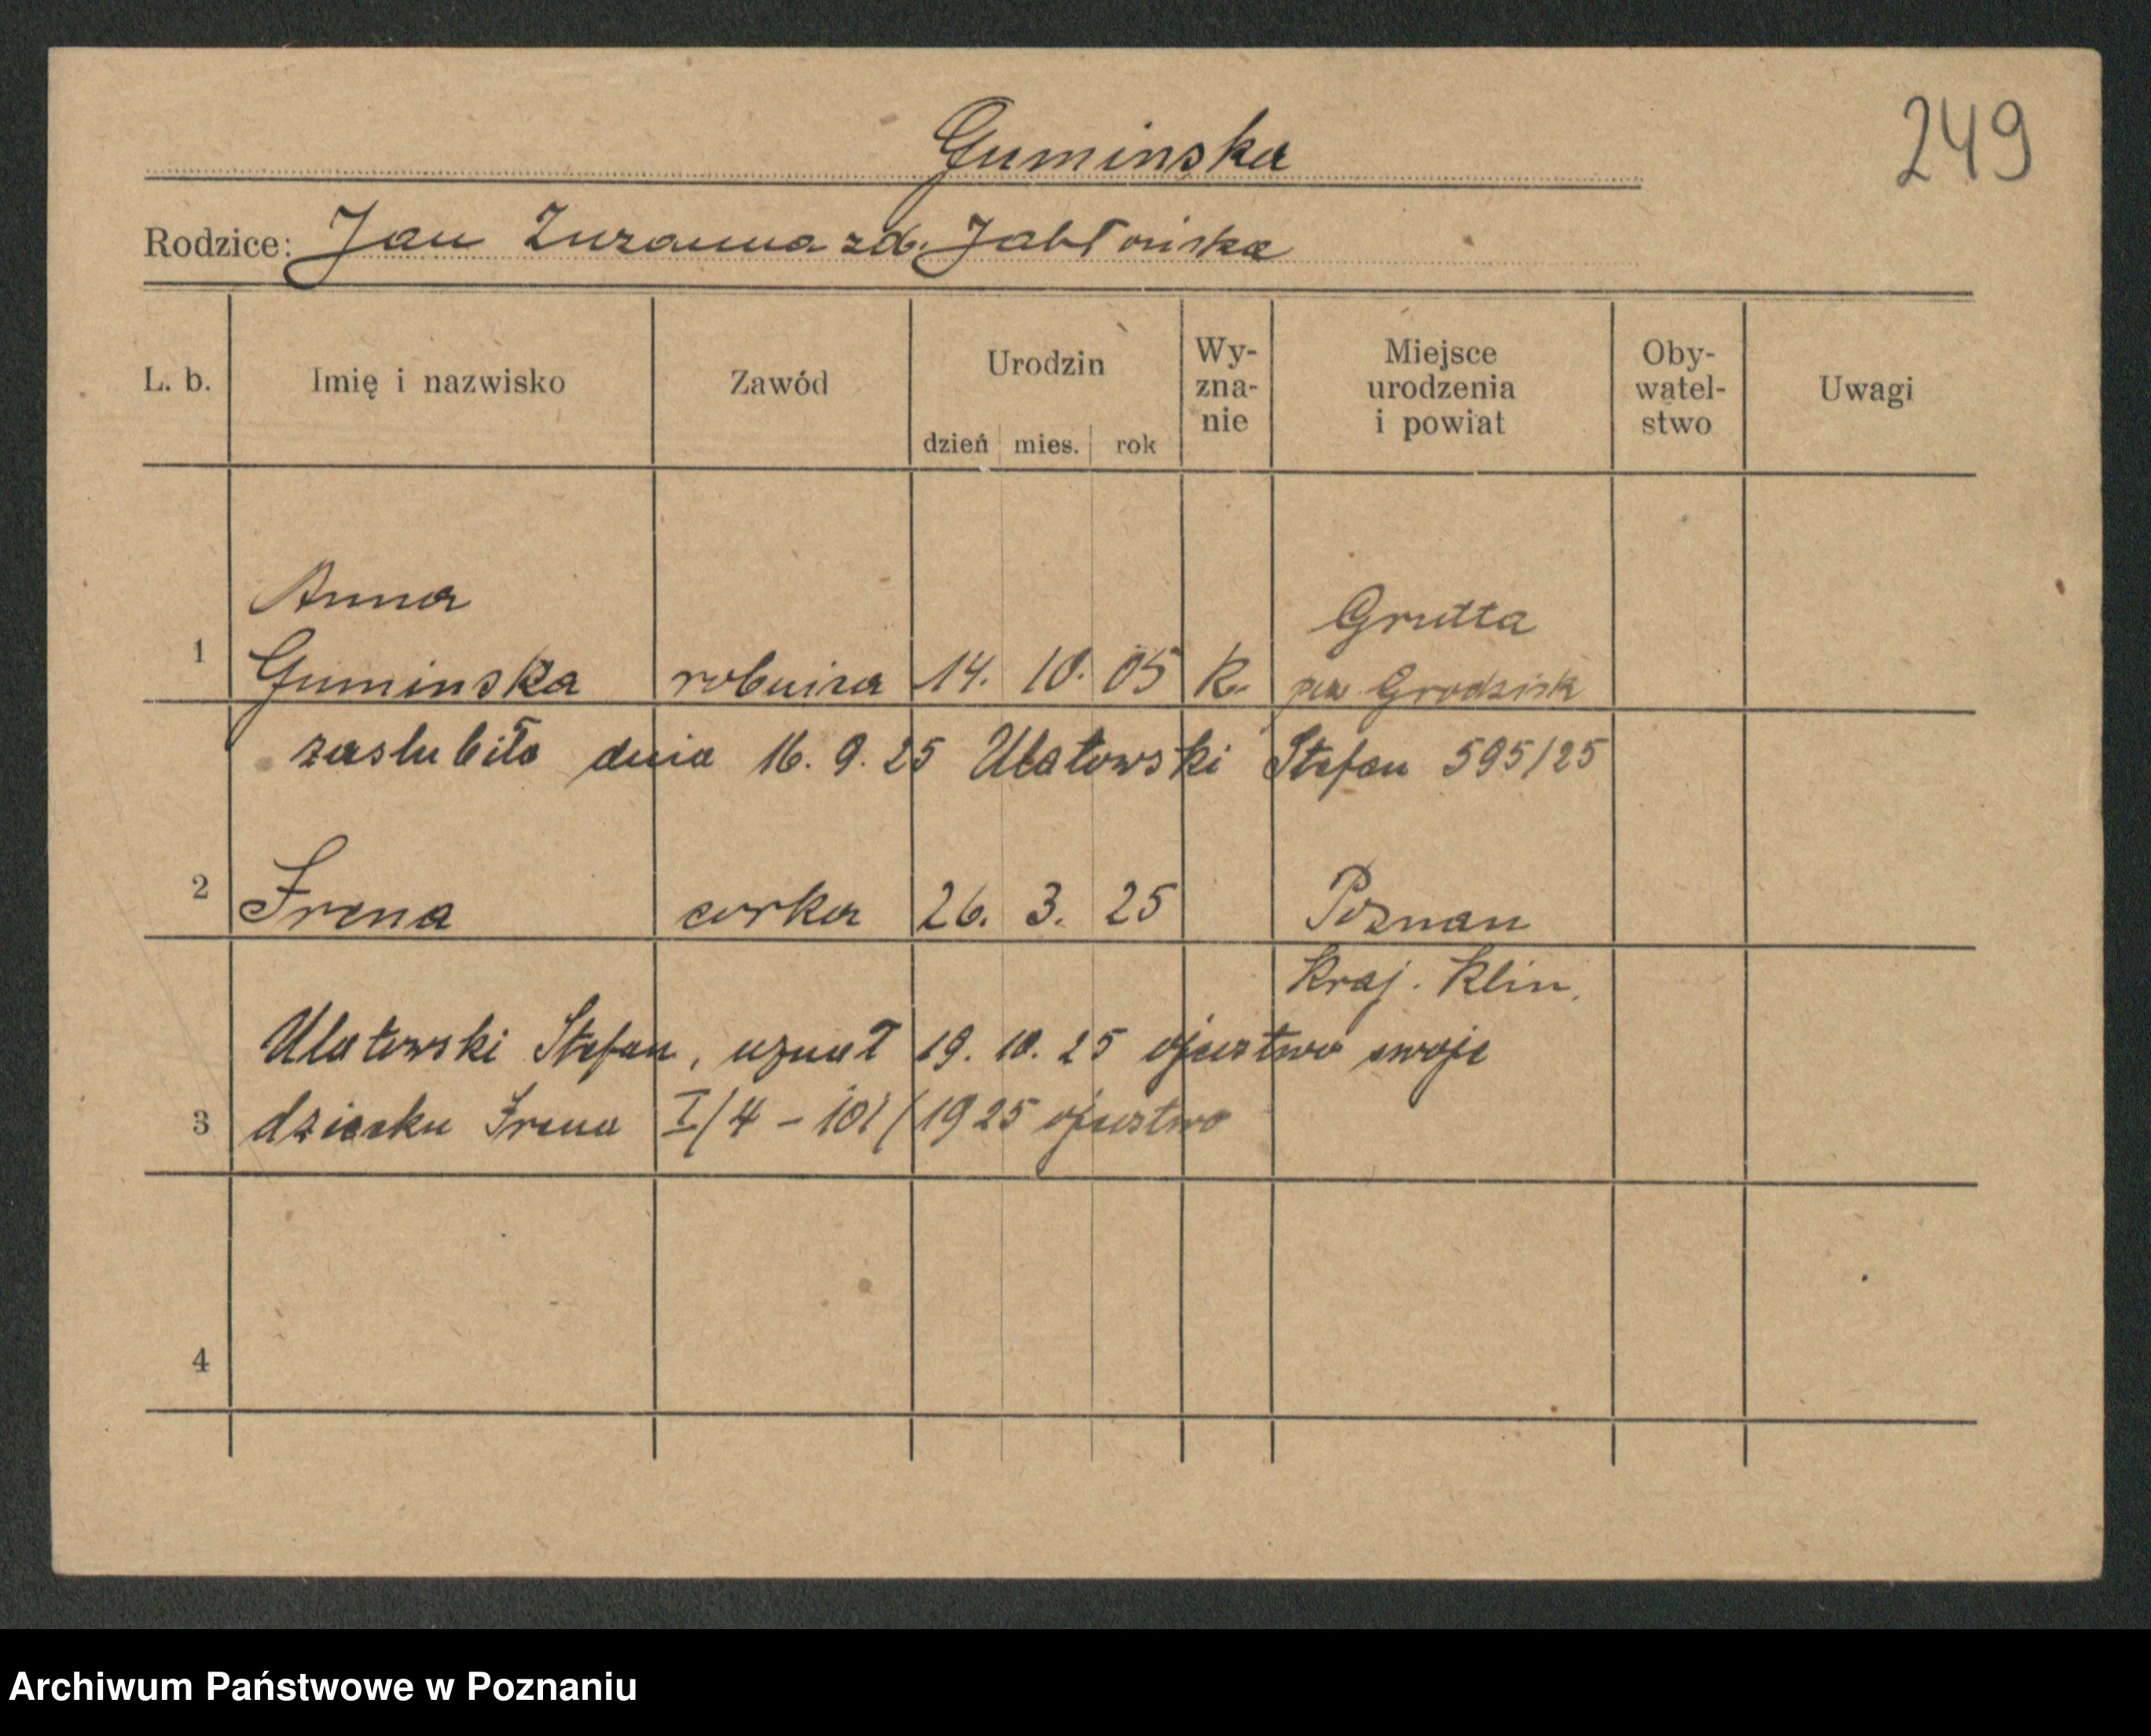 249
Guminska
Rodzice: Jan Zuzanna zd. Jabłońska
L. b. Imię i nazwisko Zawód Urodzin dzień mies. rok Wy-zna-nie Miejsce urodzenia i powiat Oby-watel-stwo Uwagi
Anna Grutta
1 Guminska robnica 14. 10. 05 k. pow Grodzisk
zaslubiła dnia 16. 9. 25 Ulatowski Stefan 595/25
2 Irena corka 26. 3. 25 Poznan
Kraj. Klin.
Ulatowski Stefan, uznał 19. 10. 25 ojcostwo swoje
3 dziecku Irena I/4 - 101/1925 ojcostwo
4
Archiwum Państwowe w Poznaniu